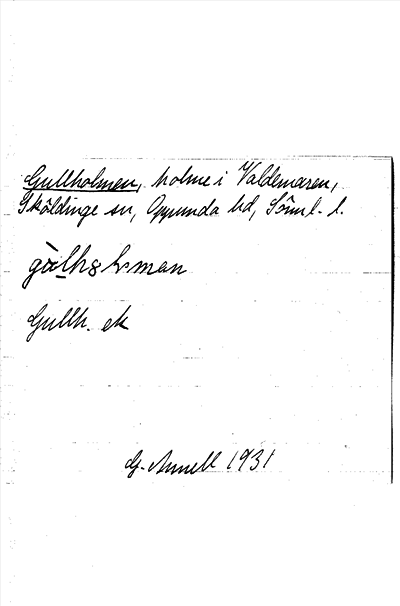 Gullholmen, holme i Valdemaren,
Sköldinge sn, Oppunda hd, Söml. l.
Gullh. ek
G. Annell 1931